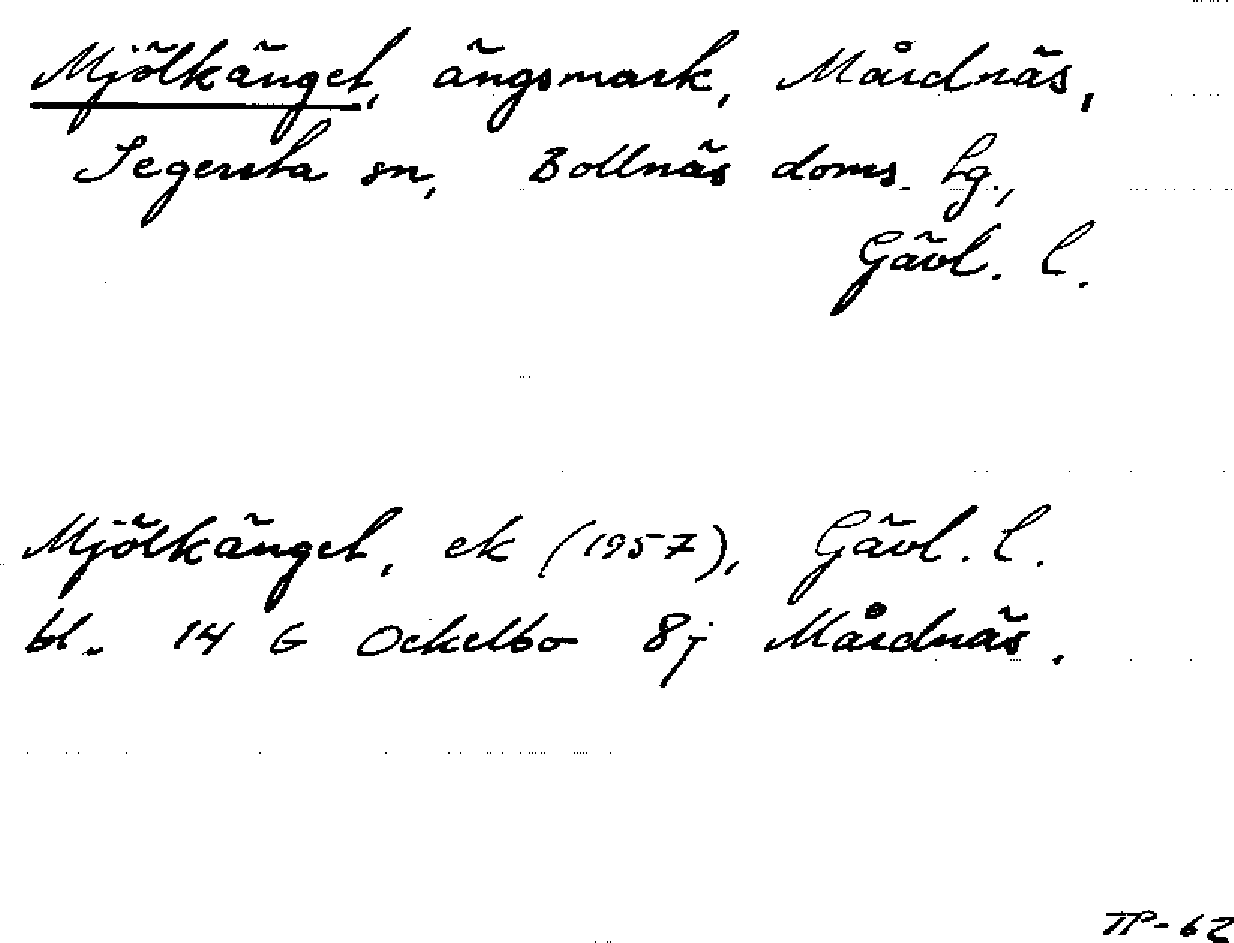 Mjölkänget, ängsmark, Mårdnäs,
Segersta sn, Bollnäs doms. hg,
Gävl. l.
Mjölkänget, ek (1957), Gävl. l.
bl. 14 G Ockelbo 8j Mårdnäs.
TP-62